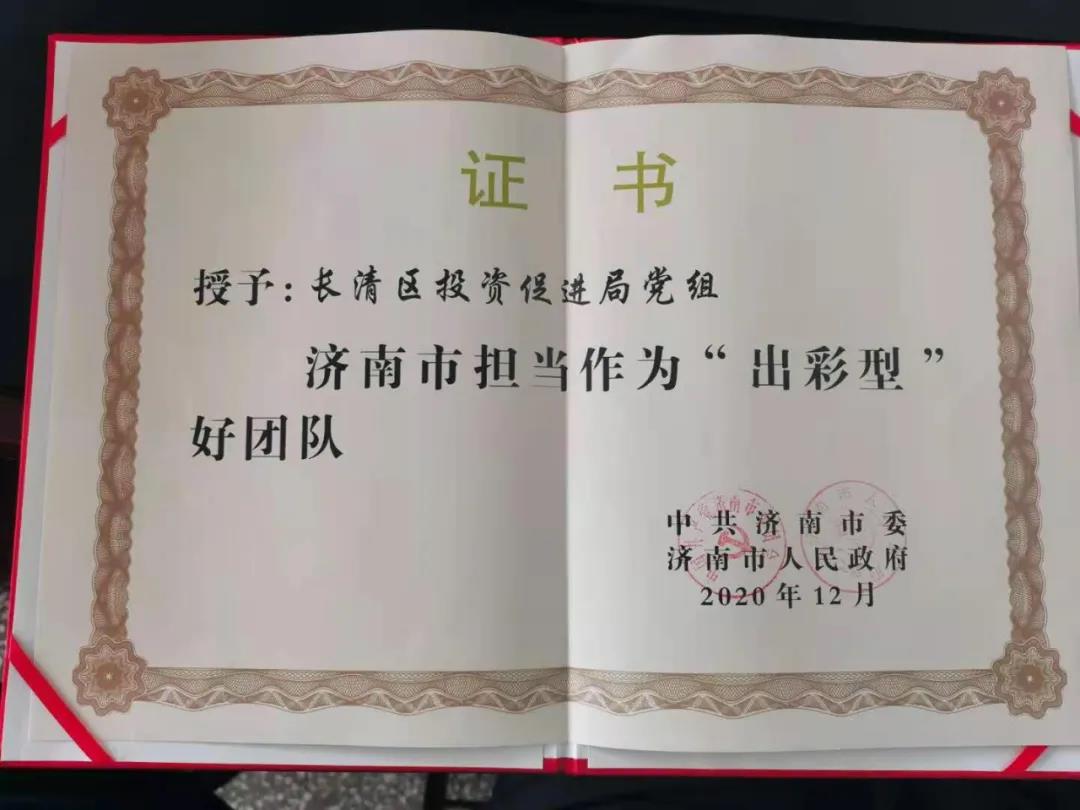 证书
授予：长清区投资促进局党组
济南市担当作为“出彩型”
好团队
中共济南市委
济南市人民政府
2020年12月